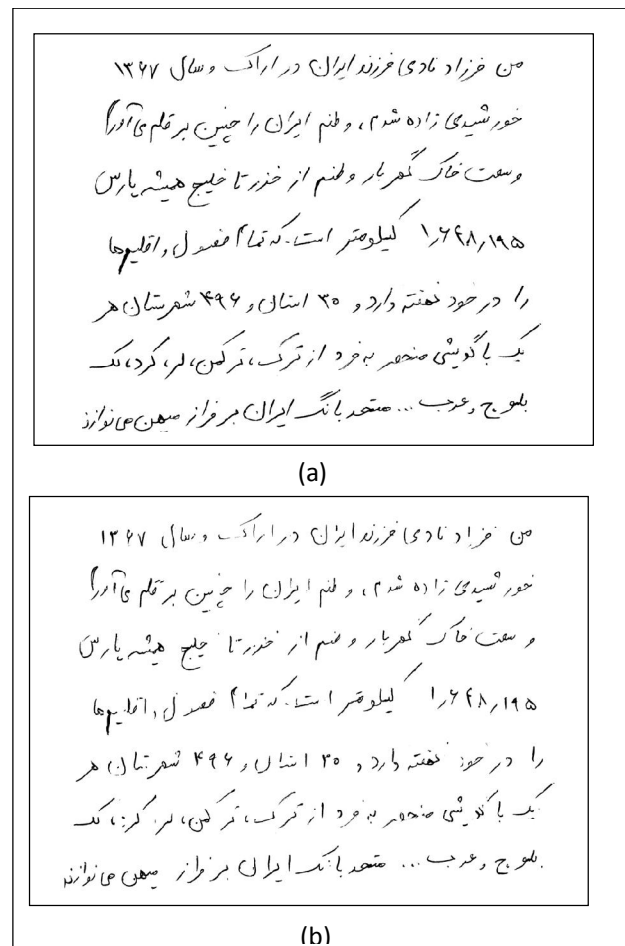 من فرزاد نادی فرزند ایران در اراک و سال ۱۳۶۷
خورشیدی زاده شدم، وطنم ایران را چنین بر قلم می‌آورم
وسعت خاک گهربار وطنم از خزر تا خلیج همیشه پارس
۱٫۶۴۸٫۱۹۵ کیلومتر است. که تمام فصول و اقلیم‌ها
را در خود نهفته دارد و ۳۰ استان و ۴۹۶ شهرستان هر
یک با گویشی منحصر به فرد از ترک، ترکمن، لر، کرد، لک
بلوچ و عرب ... متحد بانگ ایران بر فراز میهن می‌نوازند
(a)
من فرزاد نادی فرزند ایران در اراک و سال ۱۳۶۷
خورشیدی زاده شدم، وطنم ایران را چنین بر قلم می‌آورم
وسعت خاک گهربار وطنم از خزر تا خلیج همیشه پارس
۱٫۶۴۸٫۱۹۵ کیلومتر است. که تمام فصول و اقلیم‌ها
را در خود نهفته دارد و ۳۰ استان و ۴۹۶ شهرستان هر
یک با گویشی منحصر به فرد از ترک، ترکمن، لر، کرد، لک
بلوچ و عرب ... متحد بانگ ایران بر فراز میهن می‌نوازند
(b)